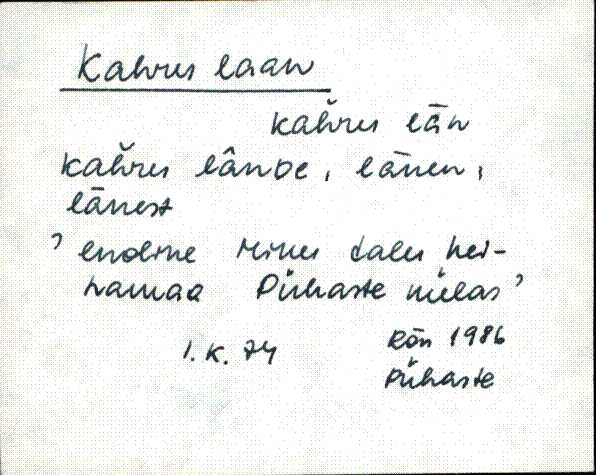 Kahrus laan
kaȟrus lān
kaȟrus lânDe, lānen,
lānest
' endine talu hei-
namaa Pühaste külas '
I. K. 74 Rõn 1986
Pühaste